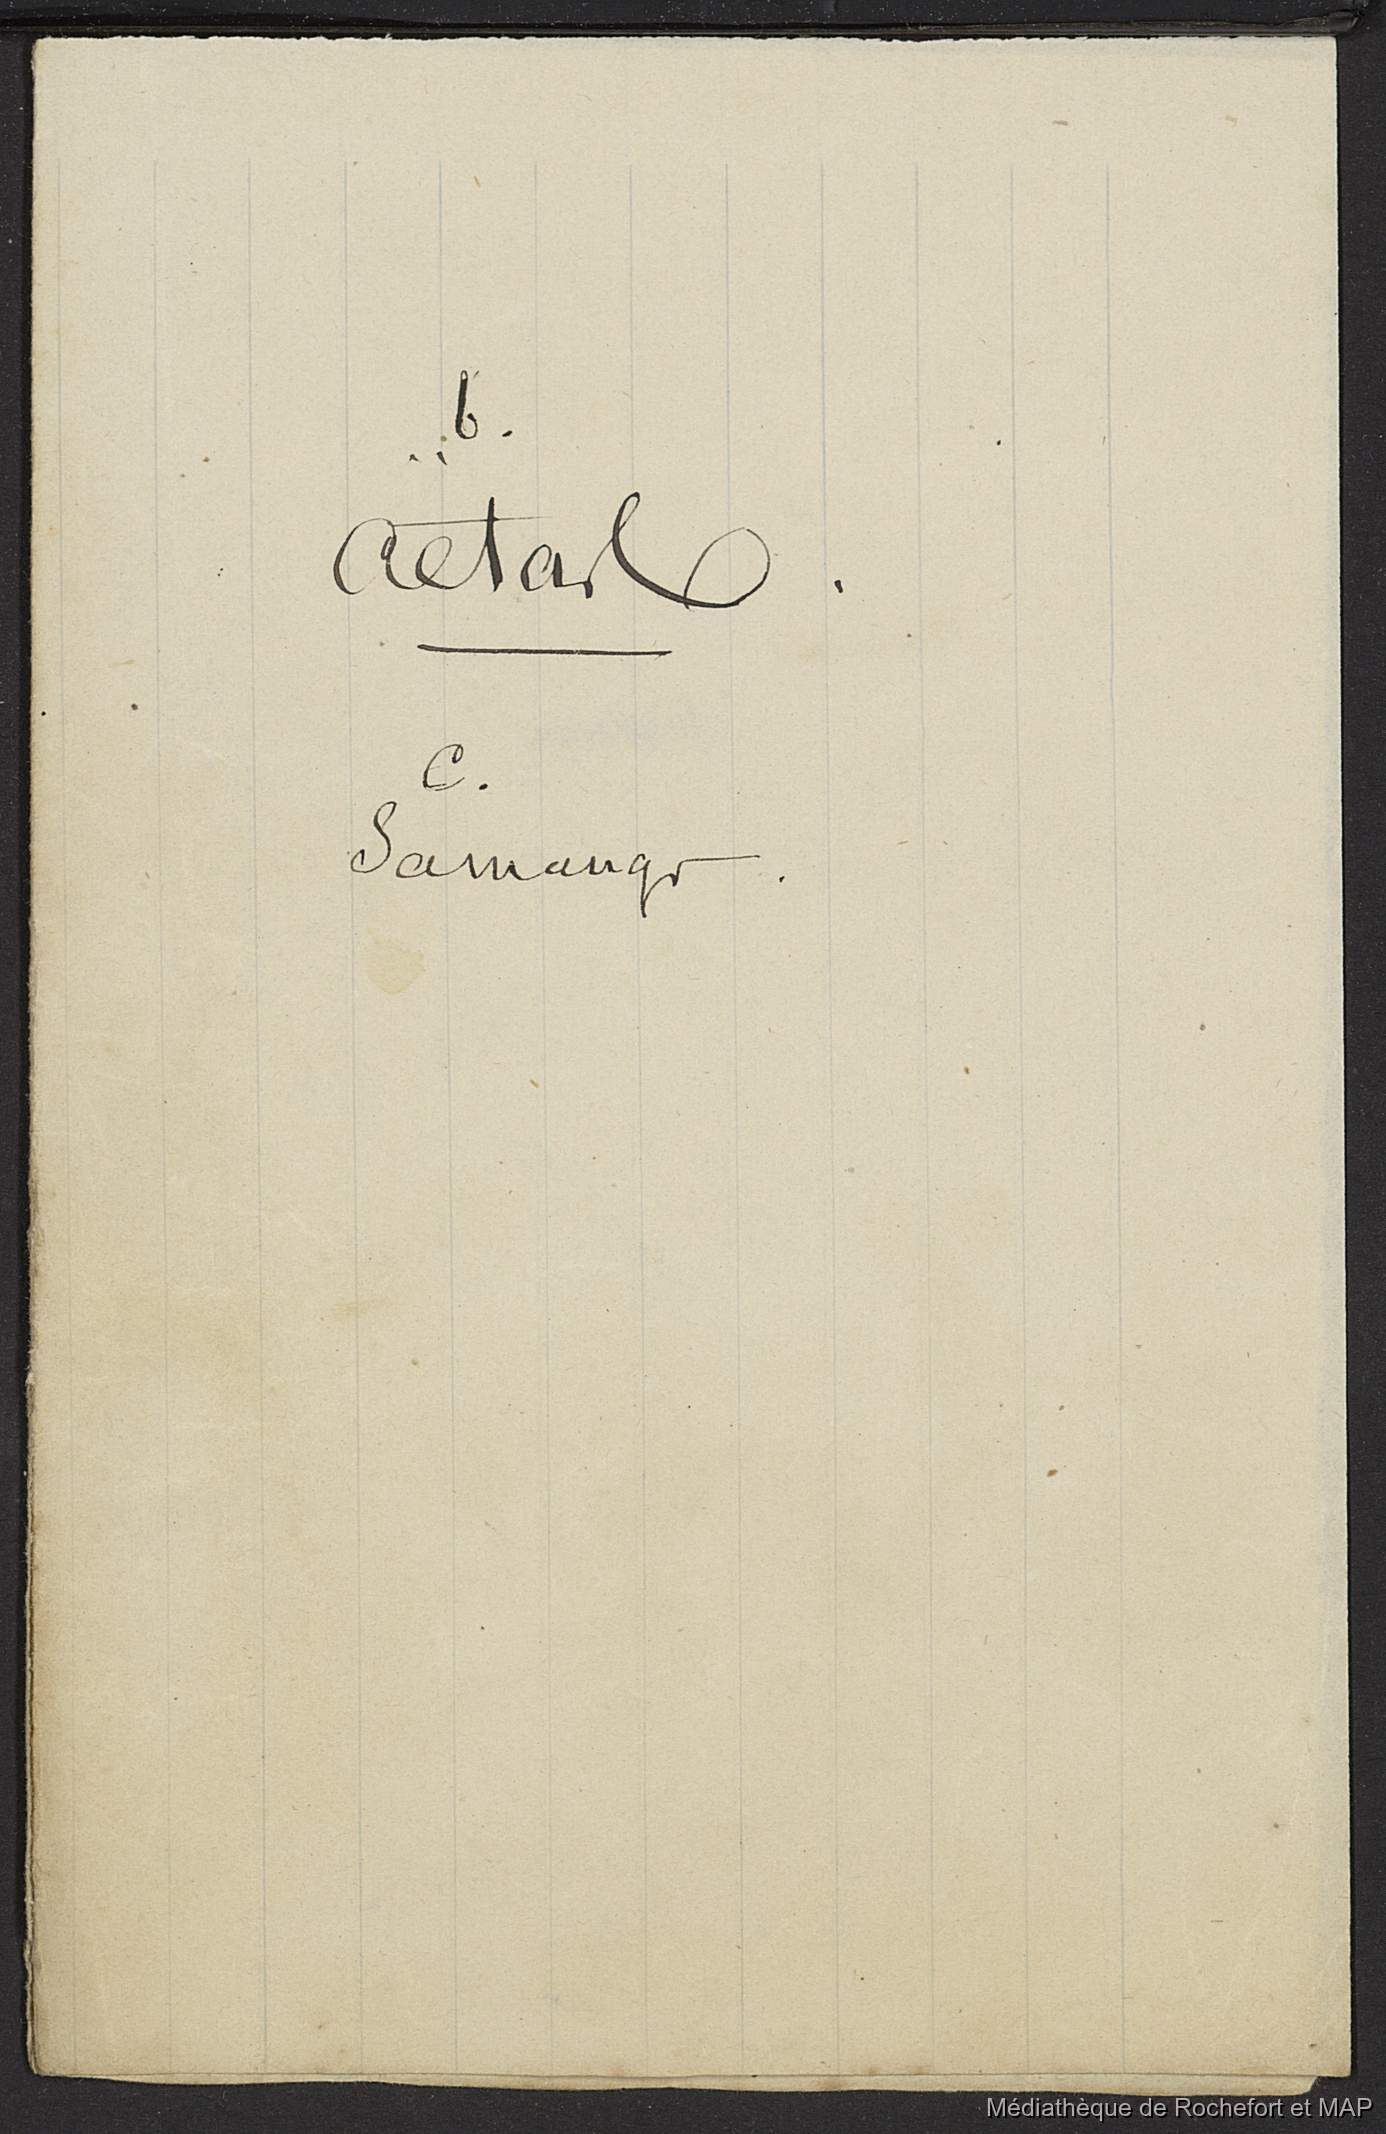 b.
Aëtarl.
C.
Samango.
Médiathèque de Rochefort et MAP